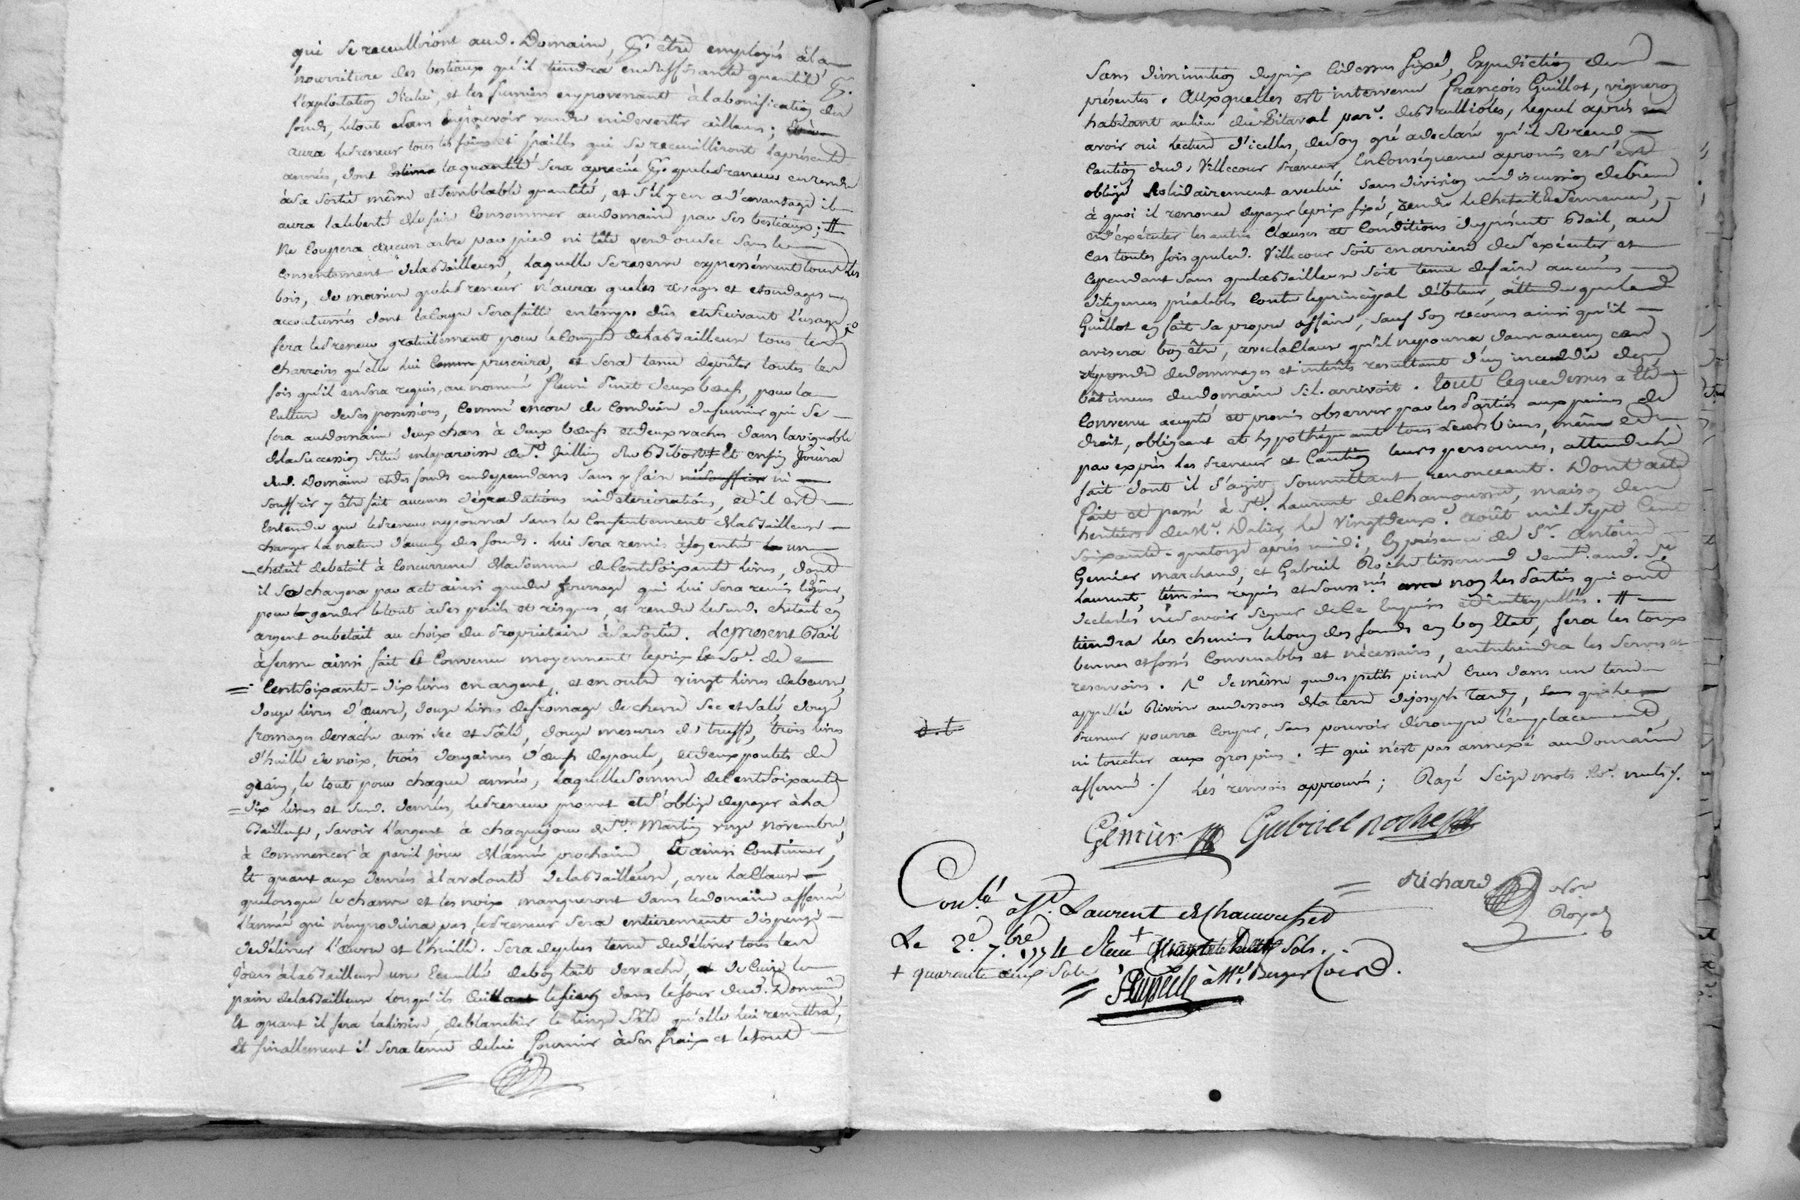 qui se receulliront aud. Domaine, pr. être employés à la
nourriture des bestiaux qu'il tiendra en suffisante quantité pr.
l'exploitation d'icelui, et les fumiers en provenant à la bonification du
fonds, le tout sans pouvoir vendre ni divertir ailleurs;
aura le preneur tous les foins et pailles qui se receuilliront la présente
année, dont la quantité sera apreciée pr. que le preneur en rende
à sa sortie même et semblable quantité, et s'il y en a d'avantage il
aura la liberté de le faire consommer au domaine par ses bestiaux; #
ne coupera aucun arbre par pied ni tête verd ou sec sans le
consentement de la bailleuse, laquelle se reserve expressément tous les
bois, de manière que le preneur n'aura que les élagages et étondages
accoutumés dont la coupe sera faitte en temps dûs et suivant l'usage,
fera le preneur gratuitement pour le compte de la bailleuse tous les
charrois qu'elle lui prescrira, et sera tenu de prêter toutes les
fois qu'il en sera requis, au nommé Fleuri Pinet deux bœufs, pour la
culture de ses possessions, comme encore de conduire du fumier qui se
fera aud. domaine deux chars à deux bœufs et deux vaches dans la vignoble
de la succession situé en la paroisse de St. Jullien sur Bibost ‡ et enfin jouira
dud. Domaine et des fonds en dependans sans y faire ni
souffrir y être fait aucunes dégradations ni déteriorations, et il est
entendu que le preneur ne pourra sans le consentement de la bailleuse
changer la nature d'aucun des fonds. lui sera remis à son entrée un
cheteil de bétail à concurrence de la somme de cent soixante livres, dont
il se chargera par acte ainsi que du fourrage qui lui sera remis
pour garder le tout à ses perils et risques, et rendre le susd. cheteil en
argent ou bétail au choix du propriétaire à sa sortie. Le present bail
à ferme ainsi fait et convenu moyennant le prix et so.e de
cent soixante-dix livres en argent, et en outre vingt livres de beurre,
douze livres d'œuvre, douze livres de fromage de chevre sec et salé douze
fromages de vache aussi sec et salé, douze mesures de truffe, trois livres
d'huille de noix, trois douzaines d'œufs de poule, et deux poulets de
grain, le tout pour chaque année, laquelle somme de cent soixante
dix livres et susd. denrées, le preneur promet et s'oblige de payer à la
Bailleuse, savoir l'argent à chaque jour de St. Martin onze novembre,
à commencer à pareil jour de l'année prochaine, et ainsi continuer,
et quant aux denrées à la volonté de la bailleuse, avec la clause
que lorsque le chanvre et les noix manqueront dans le domaine affermé
l'année qui n'en produira pas, le preneur sera entièrement dispensé
de délivrer l'œuvre et l'huille. sera de plus tenu de délivrer tous les
jours à la bailleuse un écuellée de bon lait de vache, et de cuire le
pain de la bailleuse lorsqu'il cuira le sien dans le four dud. Domaine
et quant il fera la lessive, de blanchir le linge sale qu'elle lui remettra,
et finallement il sera tenu de lui fournir à ses fraix et le tout
sans diminution du prix cidessus fixé, Expedition des
présentes. Auxquelles est intervenu François Guillot, vigneron
habitant au lieu de Pitaval parr. de Brullioles, lequel après
avoir oui lecture d'icelles, de son gré a declaré qu'il se rend
caution dud. Villecour preneur, en conséquence a promis et s'est
obligé solidairement avec lui sans division ni discussion de biens
à quoi il renonce de payer le prix fixé, rendre le cheteil et le
et d'exécuter les autres clauses et conditions du présent Bail, au
cas toutes fois que led. Villecour soit en arriere de s'exécuter, et
cependant sans que la bailleuse soit tenue de faire aucunes
diligences préalables contre le principal débiteur, attendu que led.
Guillot en fait sa propre affaire, sauf son recours ainsi qu'il
avisera bon être, avec la clause qu'il ne pourra dans aucun cas
répondre des dommages et intérêts resultant d'un incendie des
bâtimens du domaine s'il arrivoit. tout ce que dessus a été
convenu accepté et promis observer par les parties aux peines de
droit, obligeant et hypothéquant tous leurs biens, même led.
par exprès les preneur et caution leurs personnes, attendu le
fait dont il s'agit, soumettant, renonceant. Dont acte
fait et passé à St. Laurent de Chamousset, maison des
heritiers de Me. Dalier, le vingt deux e. août mil sept cent
soixante-quatorze après midi, en présence de Sr. Antoine
Gemier marchand, et Gabriel Roche tisserand demt. aud. St.
Laurent, témoins requis et sousnés. non les parties qui ont
declarés ne savoir signer de ce enquis et interpellés. #
tiendra les chemins le long des fonds en bon état, fera les
bennes et fossés convenables et nécessaires, entretiendra les serves et
reservoirs. No. de même que des petits pins crus dans un terre
appellée Rivoire au dessous de la terre de Joseph Tardy, que le
Preneur pourra couper, sans pouvoir dérompre l'emplacement,
ni toucher aux gros pins. ‡ qui n'est pas annexé au domaine
affermé ./ Les renvois approuvés; Rayé seize mots co.e nuls /.
Gemier Gabriel roche
Richard Nore
Royal
Conlé à St. Laurent de Chamousset
Le 2e. 7bre 1774 Reçu + sols.
+ quarante deux sols
à Me. Berger